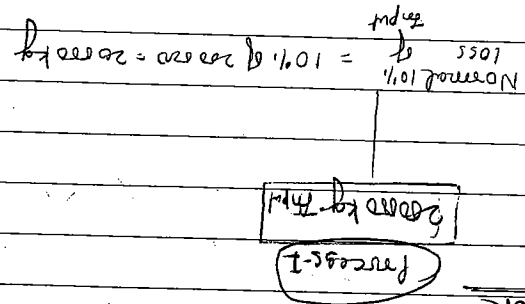 Process-I
200000 kg Input
Normal 10% of Input = 10% of 200000 = 20000 kg
Loss